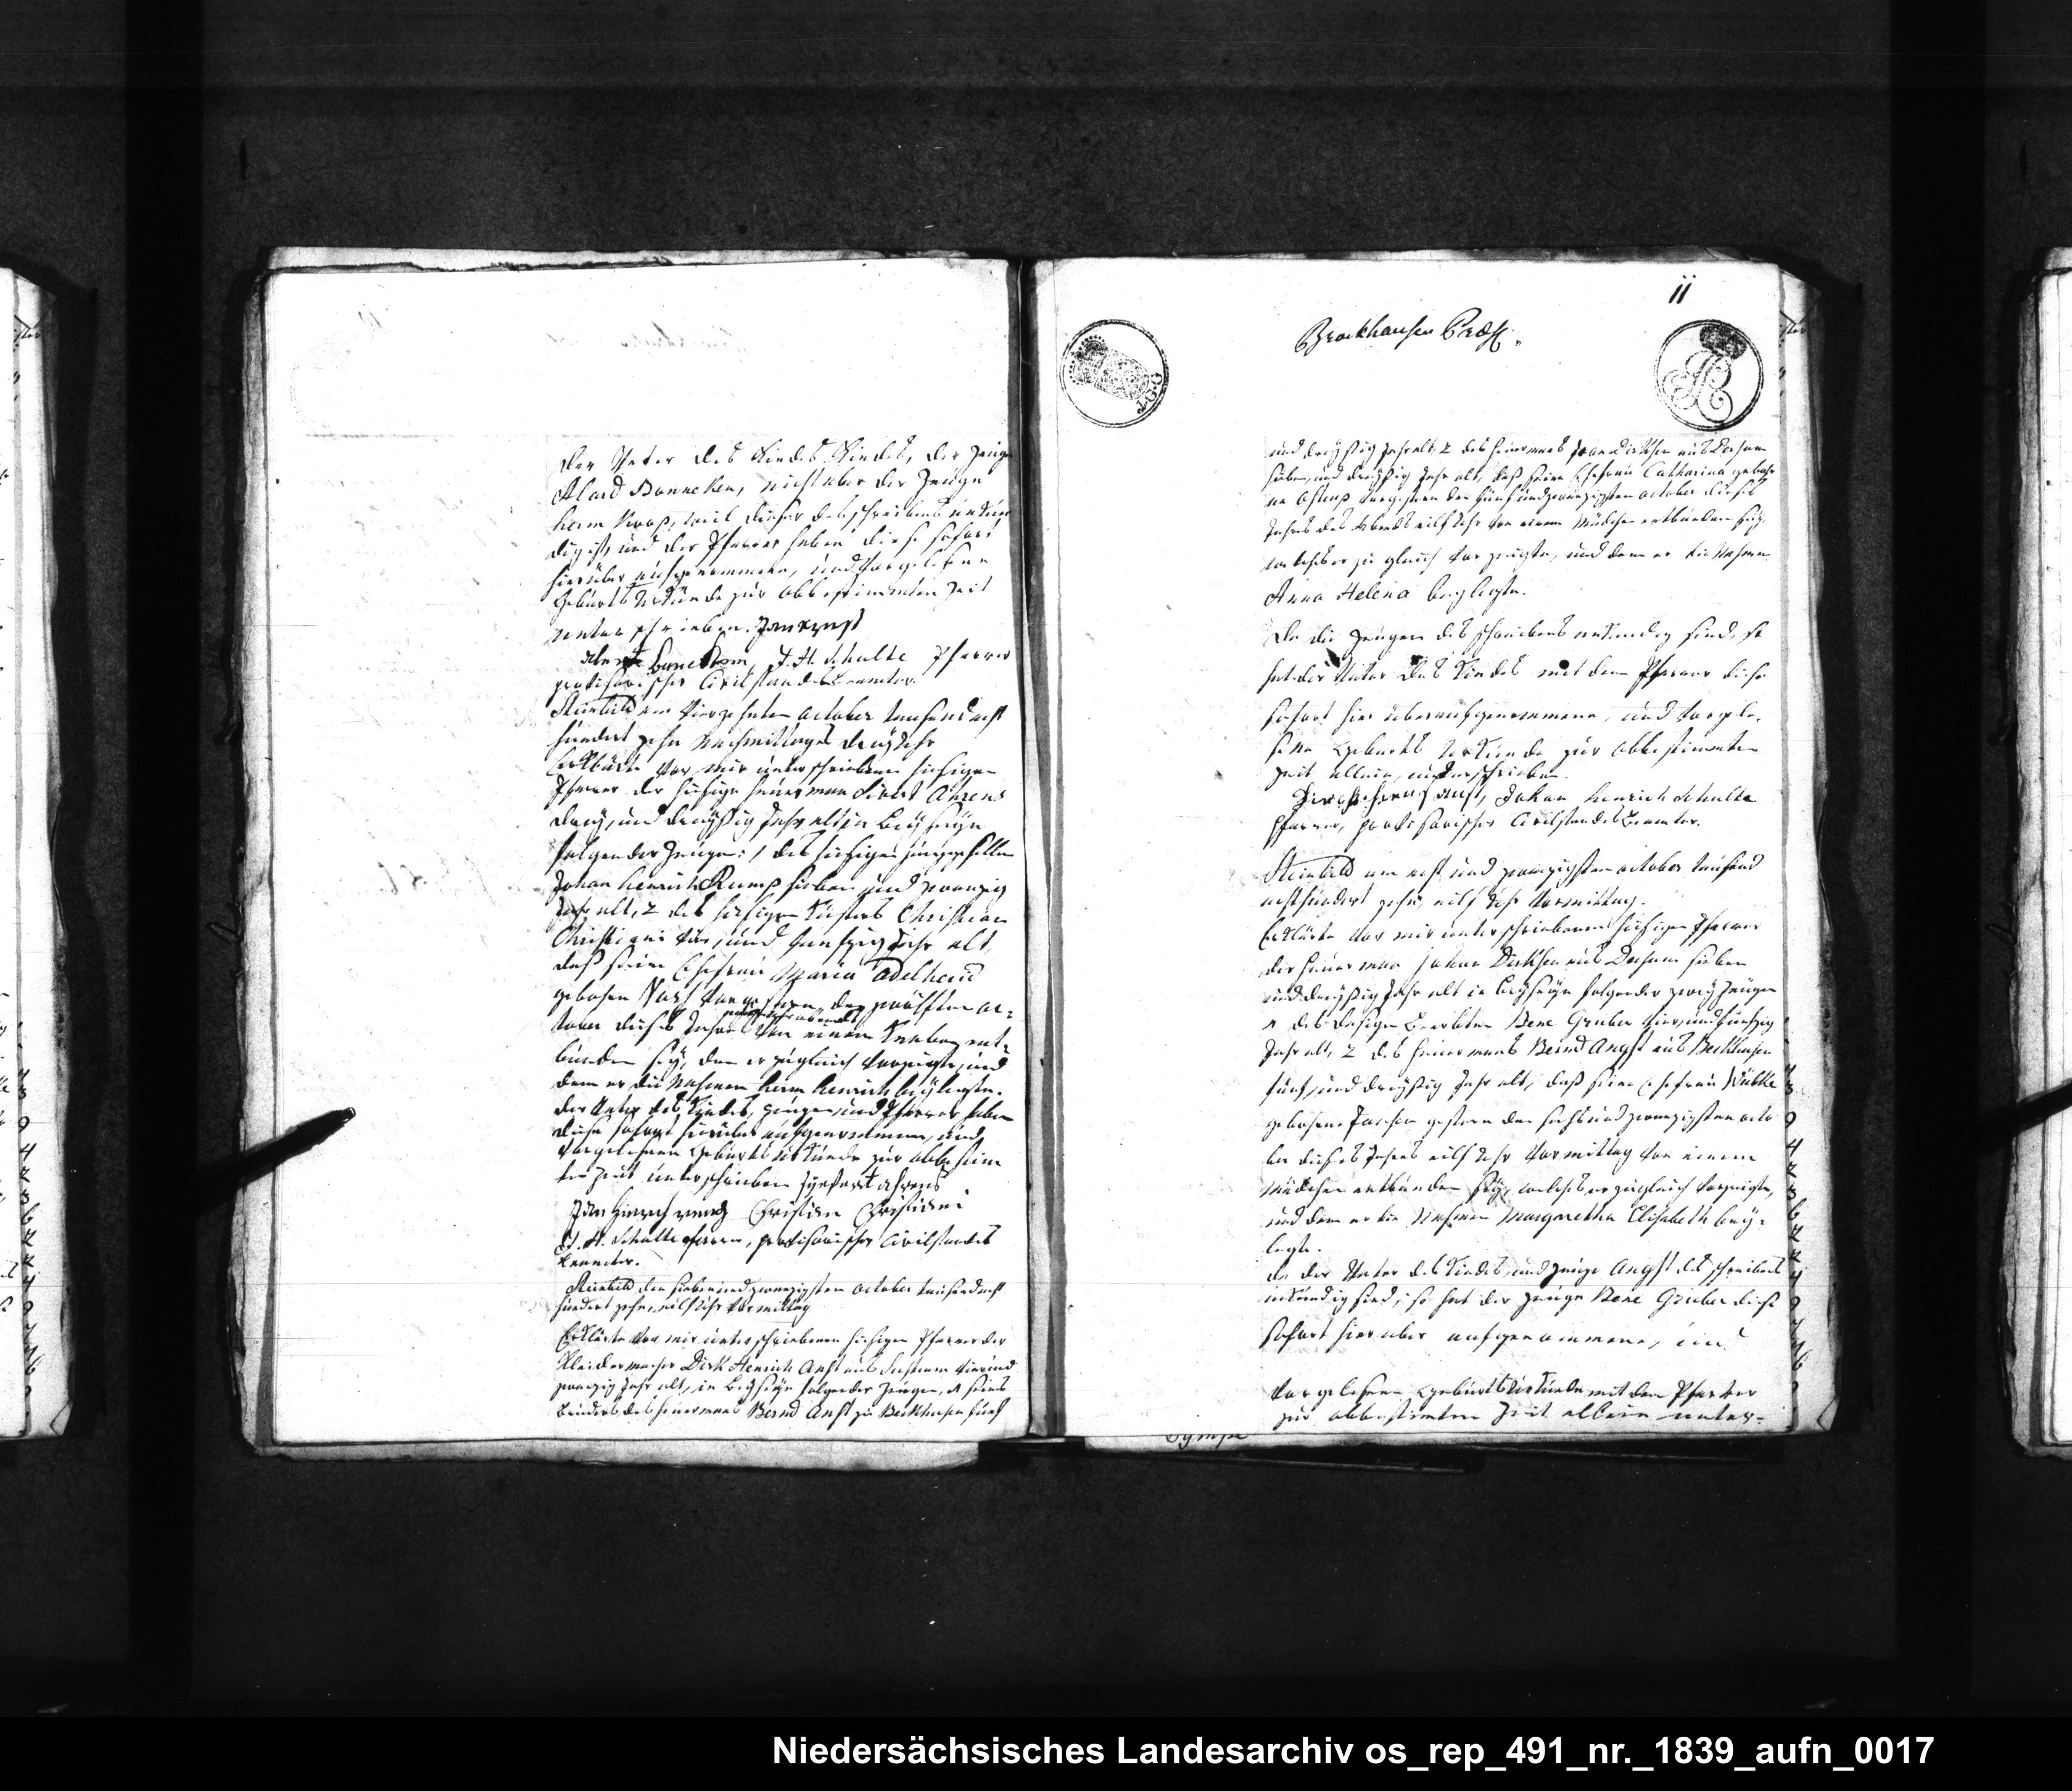 der Vater des Kindes Kindes, der Zeuge
Alard Banneken, nicht aber der Zeuge
Herm Kroop, weil dieser des schreibens unkün
dig ist, und der Pfarrer haben diese sofort
hierüber aufgenommene, und vorgelesene
Geburts Urkunde zur obbestimmten Zeit
unterschrieben.
J. H. Schulte Pfarrer
provisorischer Civilstands Beamter.
Steinbild am vierzehnten October tausend acht
hundert zehn Nachmittags drey Uhr
Erklärte vor mir unterschriebenen hiesigen
Pfarrer der hiesige Heuerman Sivert Ahrens
drey, und dreyßig Jahr alt in Beyseyn
folgender Zeugen: 1 des hiesigen Junggesellen
Johan Henrich Rump sieben und zwanzig
Jahr alt, 2 des hiesigen Küsters Christian
Christiani vier, und funfzig Jahr alt,
daß seine Ehefrau Maria Adelheid
gebohren vorgestern den zwölften oc-
tober dieses Jahres von einem Knaben ent-
bunden sey, den er zugleich vorzeigte, und
dem er die Nahmen Herm Henrich beylegte.
der Vater des Kindes, Zeugen und Pfarrer haben
diese sofort hierüber aufgenommene, und
vorgelesene Geburts Urkunde zur obbestim
ten Zeit unterschrieben
Christian Christiani
J. H. Schulte Pfarrer, provisorischer Civilstandes
Beamter.
Steinbild den sieben und zwanzigsten October tausend acht
hundert zehn, eilf Uhr Vormittag
Erklärte vor mir unterschriebenen hiesigen Pfarrer der
Kleidermacher Dirk Henrich Anst aus vier und
zwanzig Jahr alt, in Beyseyn folgender Zeugen, 1 seines
Bruders des Heuermans Bernd Anst zu Beckhusen fünf
11
Brockhausen
und dreyßig Jahr alt, 2 des Heuermans Johan Dirksen aus Dersum
sieben, und dreyßig Jahr alt, daß seine Ehefrau Catharina gebohr
ne vorgestern den fünf und zwanzigsten October dieses
Jahres des Abends eilf Uhr von einem Mädchen entbunden sey
welches er zugleich vorzeigte, und dem er die Nahmen
Anna Helena beylegte.
Da die Zeugen des schreibens unkundig sind, so
hat der Vater des Kindes mit dem Pfarrer diese
sofort hierüber aufgenommene, und vorgele-
sene Geburts Urkunde zur obbestimten
Zeit allein, unterschrieben.
Johan Henrich Schulte
Pfarrer, provisorischer Civilstandes Beamter.
Steinbild am acht und zwanzigsten october tausend
achthundert zehn, eilf Uhr Vormittag.
Erklärte vor mir unterschriebenen hiesigen Pfarrer
der Heuerman Johan Dirksen aus Dersum sieben
und dreyßig Jahr alt in Beyseyn folgender zwey Zeugen
1 des Bene Gruber vier, und fünfzig
Jahr alt, 2 des Heuermans Bernd Angst aus Beckhusen
fünf, und dreyßig Jahr alt, daß seine Ehefrau Wübke
gebohrne Jansen gestern den sechs und zwanzigsten octo
ber dieses Jahres eilf Uhr Vormittag von einem
Mädchen entbunden sey, welches er zugleich vorzeigte,
und dem er die Nahmen Margaretha Elisabeth bey-
legte.
da der Vater des Kindes, und Zeuge Angst des schreibens
unkundig sind, so hat der Zeuge Bene Gruber diese
sofort hierüber aufgenommene, und
vorgelesene Geburts Urkunde mit dem Pfarrer
zur obbestimten Zeit allein unter-
Niedersächsisches Landesarchiv os_rep_491_nr._1839_aufn_0017